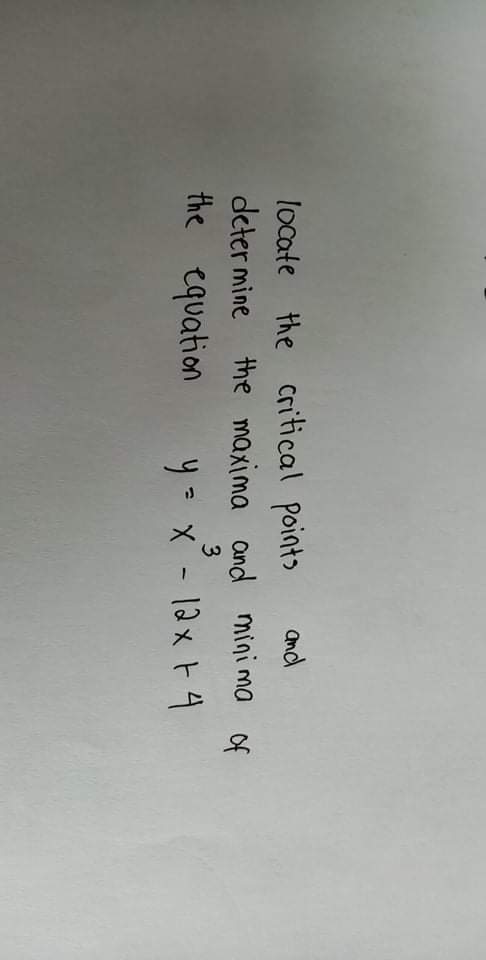 locate the critical points and
determine the maxima and minima of
the equation y = x³ - 12x + 4